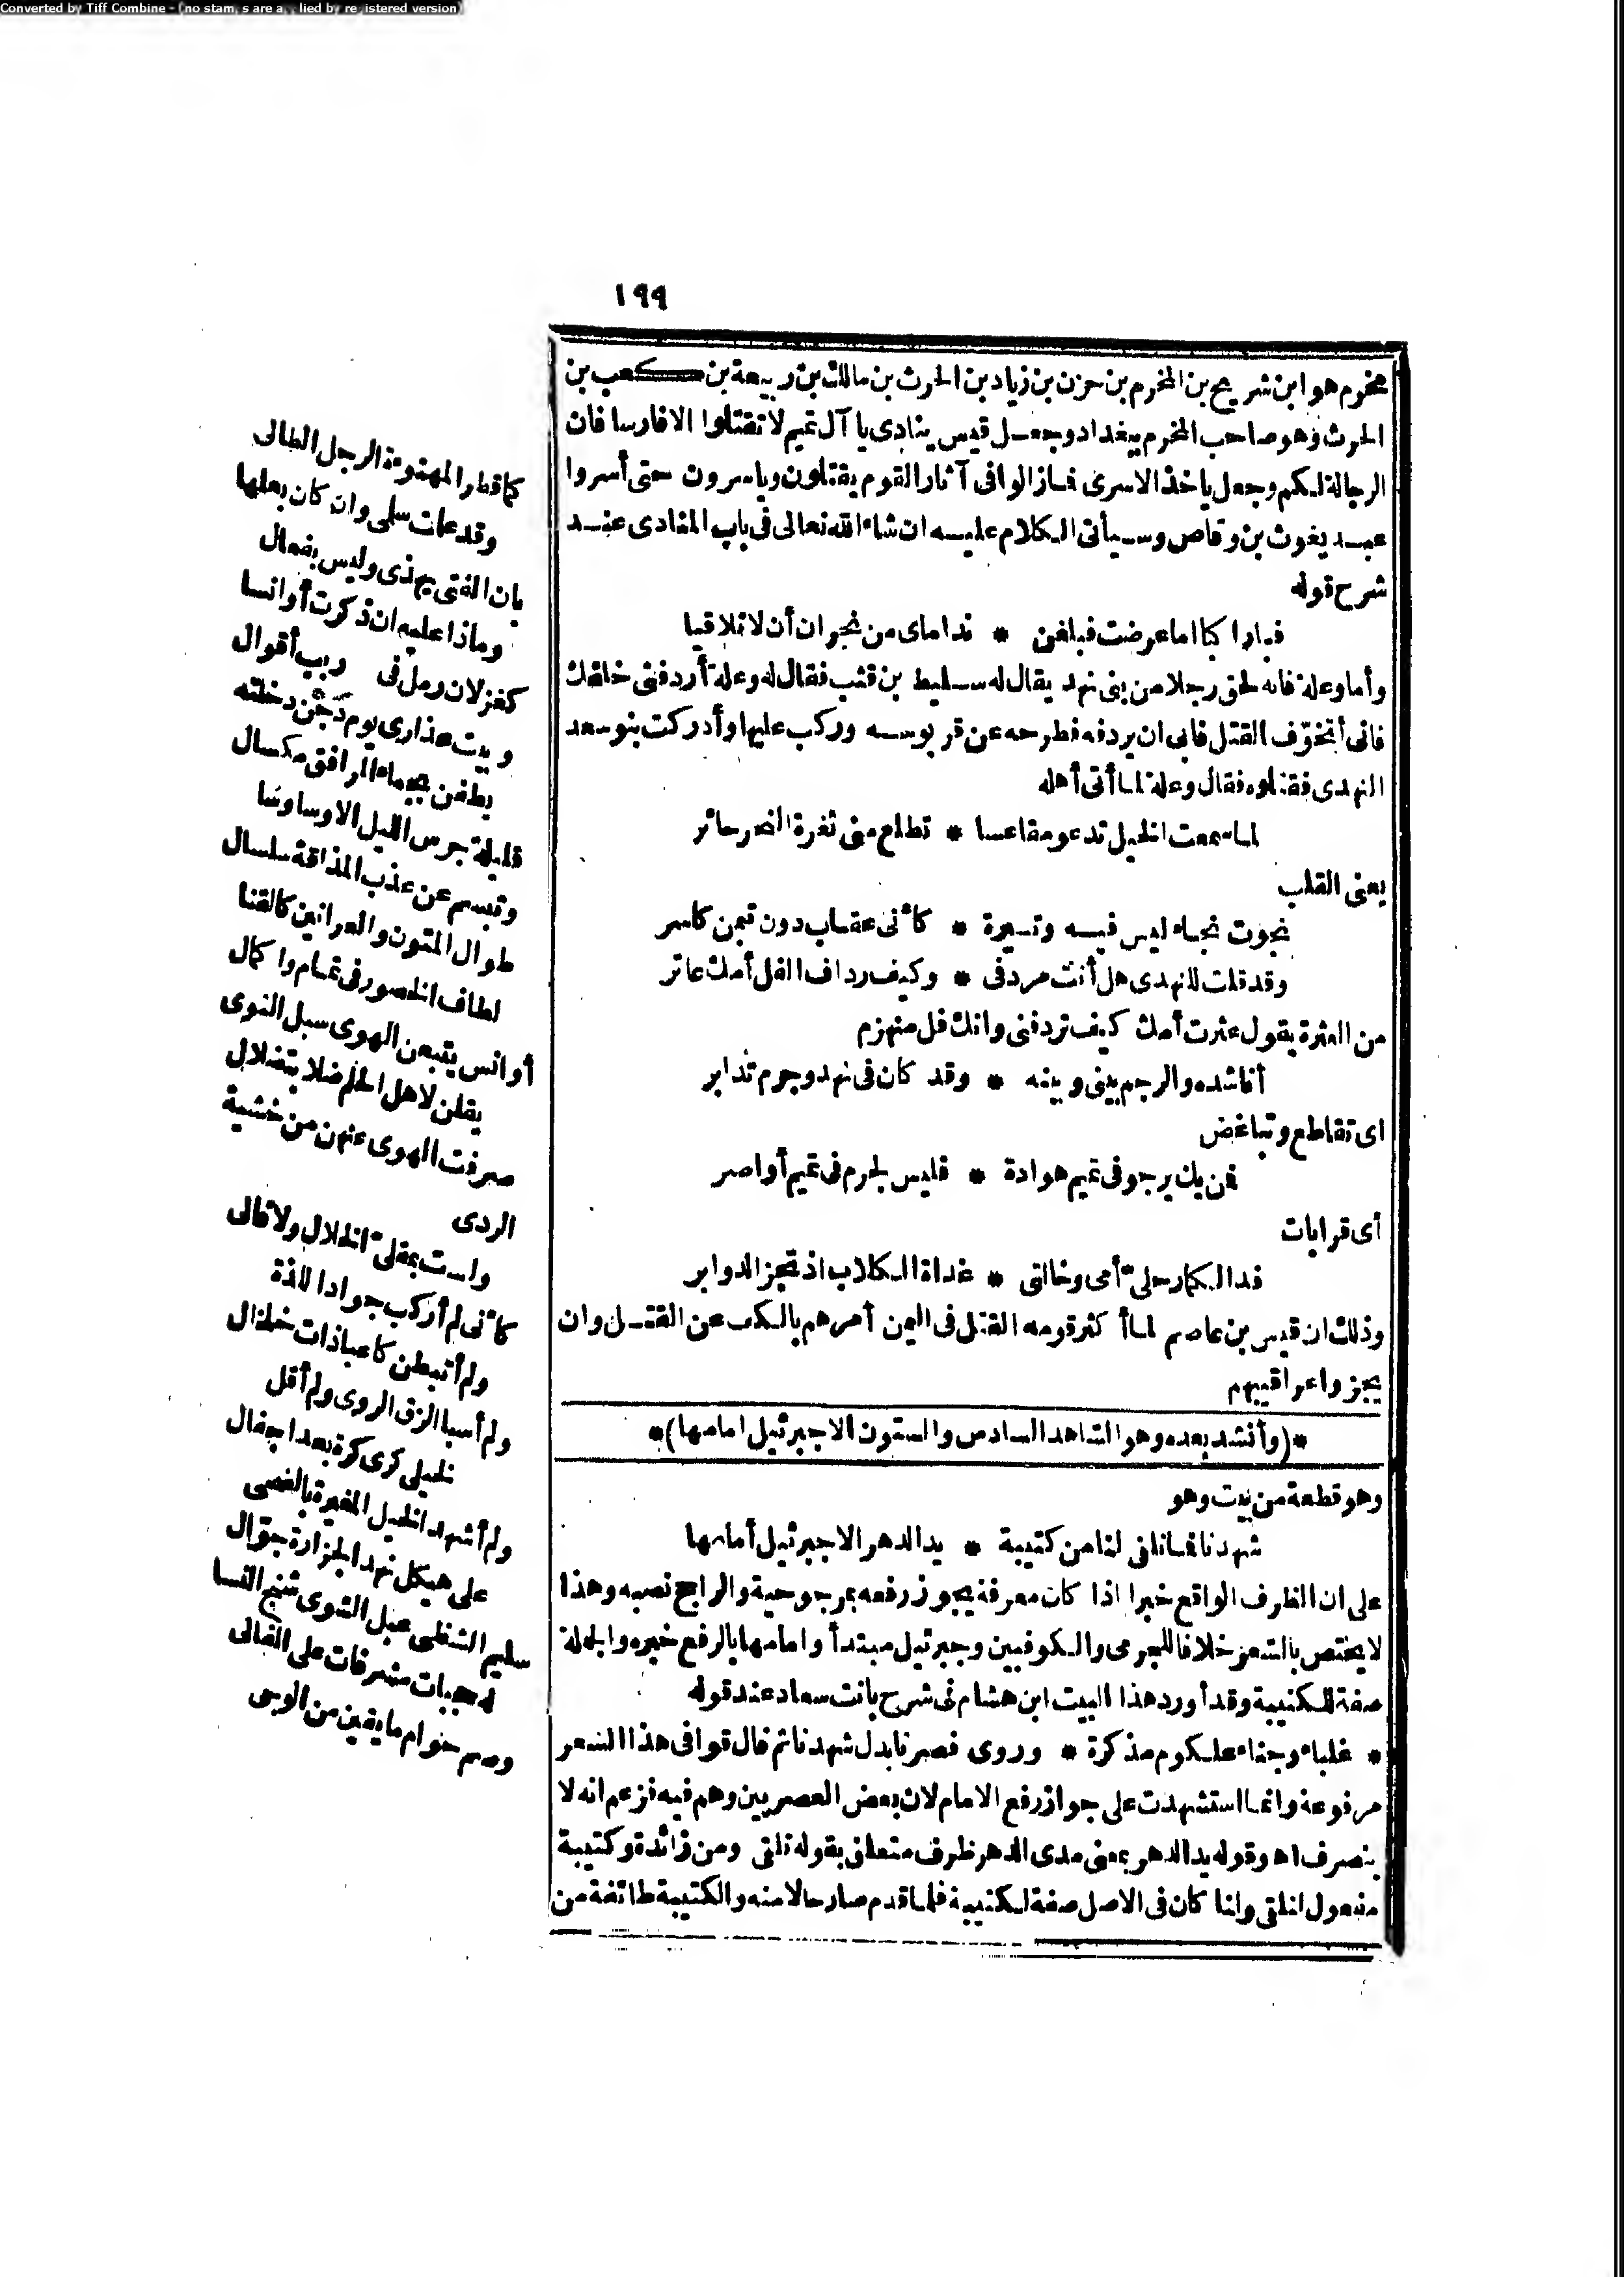 Converted by Tiff Combine - (no stamps are applied by registered version)
١٩٩
مخرم هو ابن شريح بن المخرم بن حزن بن زياد بن الحرث بن مالك بن ربيعة بن كعب بن
الحرث وهو صاحب المخرم ببغداد وجعل قيس ينادى يا آل تميم لا تقتلوا الا فارسا فان
الرجالة لكم وجعل ياخذ الاسرى فمازالوا فى آثار القوم يقتلون وياسرون حتى أسروا
عبد يغوث بن وقاص وسيأتى الكلام عليه ان شاء الله تعالى فى باب المنادى عند
شرح قوله
فيا راكبا اما عرضت فبلغن * نداماى من نجران أن لا تلاقيا
وأما وعلة فانه لحق رجلا من بنى نهد يقال له سليط بن قتب فقال له وعلة أردفنى خلفك
فانى أتخوّف القتل فابى ان يردفه فطرحه عن قربوسه وركب عليها وأدركت بنو سعد
النهدى فقتلوه فقال وعلة لما أتى أهله
لما سمعت الخيل تدعو مقاعسا * تطلع منى ثغرة النحر حائر
يعنى القلب
نجوت نجاء ليس فيه وتيرة * كأنى عقاب دون تيمن كاسر
وقد قلت للنهدى هل أنت مردفى * وكيف رداف الفل أمك عاثر
من العثرة يقول عثرت أمك كيف تردفنى وانك فل منهزم
أناشده والرحم بينى وبينه * وقد كان فى نهد وجرم تدابر
اى تقاطع وتباغض
فمن يك يرجو فى تميم هوادة * فليس لجرم فى تميم أواصر
أى قرابات
فدا لكما رحلىّ أمى وخالتى * غداة الكلاب اذ تحز الدوابر
وذلك ان قيس بن عاصم لما أكثر قومه القتل فى اليمن أمرهم بالكف عن القتل وان
يجزوا عراقيبهم
*(وأنشد بعده وهو الشاهد السادس والستون الا جبرئيل امامها)*
وهو قطعة من بيت وهو
شهدنا فما نلقى لنا من كتيبة * يد الدهر الا جبرئيل أمامها
على ان الظرف الواقع خبرا اذا كان معرفة يجوز رفعه بمرجوحية والراجح نصبه وهذا
لا يختص بالشعر خلافا للجرمى والكوفيين وجبرئيل مبتدأ وامامها بالرفع خبره والجملة
صفة للكتيبة وقد أورد هذا البيت ابن هشام فى شرح بانت سعاد عند قوله
* غلباء وجناء علكوم مذكرة * وروى فصرنا بدل شهدنا ثم قال قوافى هذا الشعر
مرفوعة وانما استشهدت على جواز رفع الامام لان بعض العصريين وهم فيه فزعم انه لا
ينصرف اه وقوله يد الدهر بمعنى مدى الدهر ظرف متعلق بقوله نلقى ومن زائدة وكتيبة
مفعول لنلقى ولنا كان فى الاصل صفة لكتيبة فلما قدم صار حالا منه والكتيبة طائفة من
كما قطر المهنوءة الرجل الطالى
وقد علمت سلمى وان كان بعلها
بان الفتى يهذى وليس بفعال
وماذا عليه ان ذكرت أوانسا
كغزلان رمل فى وبيب أقوال
وبيت عذارى يوم دجن دخلته
يطفن بجماء المرافق مكسال
قليلة جرس الليل الا وساوسا
وتبسم عن عذب المذاقة سلسال
طوال المتون والعرانين كالقنا
لطاف الخصور فى تمام واكمال
أوانس يتبعن الهوى سبل النوى
يقلن لاهل الحلم ضلا بتضلال
صرفت الهوى عنهن من خشية
الردى
ولست بمقلىّ الخلال ولا قالى
كأنى لم أركب جوادا للذة
ولم أتبطن كاعبا ذات خلخال
ولم أسبا الزق الروى ولم أقل
لخيلى كرى كرة بعد اجفال
ولم أشهد الخيل المغيرة بالضحى
على هيكل نهد الجزارة جوّال
سليم الشظى عبل الشوى شنج النسا
له حجبات مشرفات على الفالى
وصم حوام ما يقين من الوجى